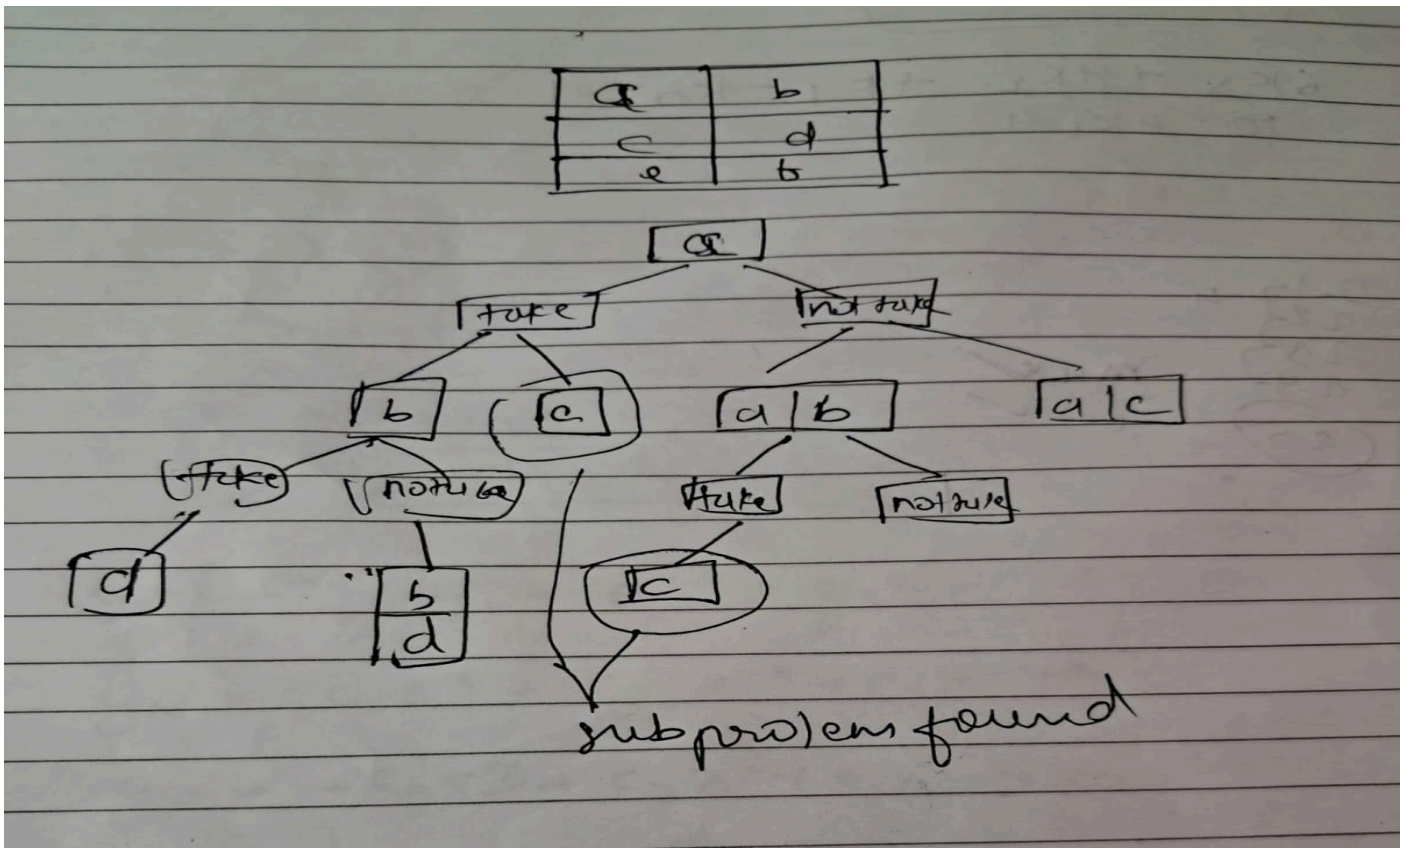 a b
c d
e b
a
take not take
b c a b a c
take not take take not take
d b c
d
subproblem found